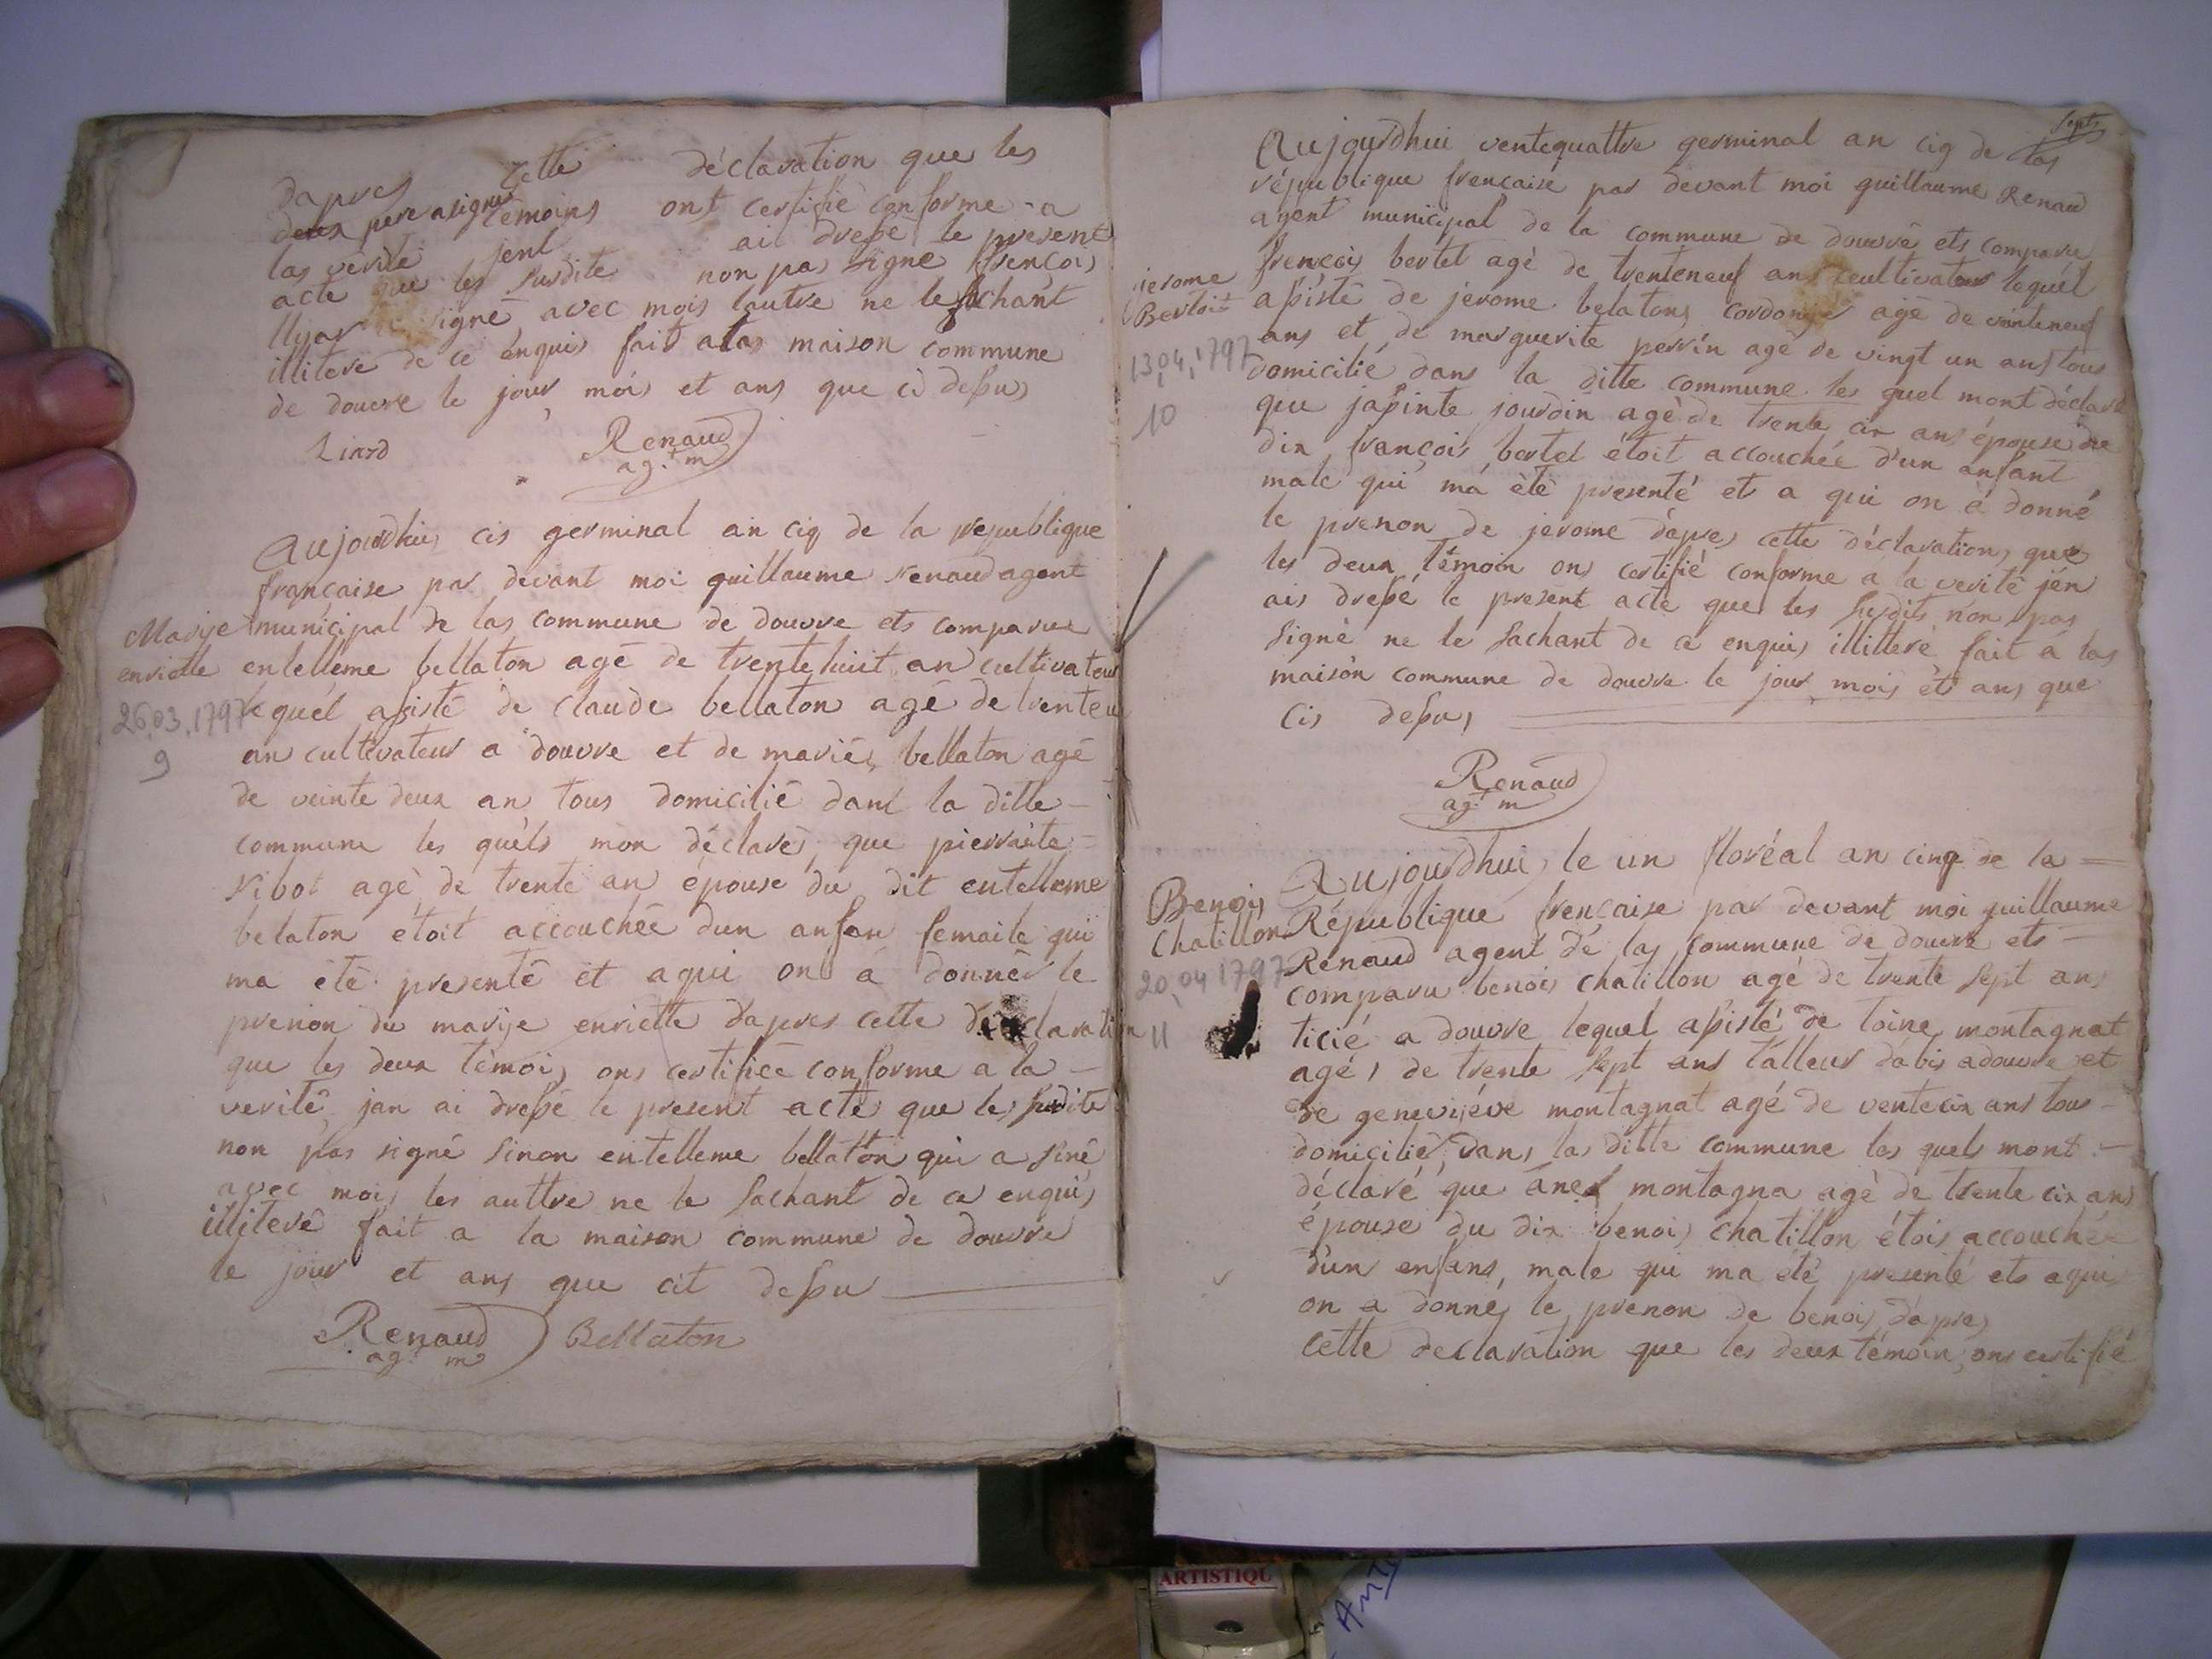 dapres cette déclaration que les
deux pere a signés témoins ont certifié conforme a
las vérité jent ai dresé le present
acte que les surdite non pas signe frencois
signé avec mois lautre ne le sachant
illitere de ce enquis fait a las maison commune
de douvre le jour mois et ans que ci desus
Renaud
ag. m
Aujourdhui cis germinal an ciq de la republique
française par devant moi guillaume renaud agent
municipal de las commune de douvre ets comparue
entelleme bellaton agé de trente huit an cultivateur
lequél asisté de claude bellaton agé de trente
an cultivateur a douvre et de mariés bellaton agé
de veinte deux an tous domicilié dans la ditte
commune les quéls mon déclarés que pierraite
ribot agé de trente an épouse du dit entelleme
belaton étoit accouchée dun anfan femaile qui
ma été presenté et aqui on a donnér le
prenon du marije enriette dapres cette declaration
que les deux témois ons certifiée conforme a la
verité jan ai dresé le present acte que les surdite
non pas signé sinon entelleme bellaton qui a siné
avec mois les auttre ne le sachant de ce enquis
illiteré fait a la maison commune de douvre
le jour et ans que cit desu
Renaud
ag. m
Bellaton
Marije
enriette
26,03,1797
9
Sept
Aujourdhui ventequattre germinal an ciq de las
république frencaise par devant moi guillaume Renaud
agent municipal de la commune de douvre ets comparu
frencois bertet agé de trenteneuf ans cultivateur lequél
asisté de jerome belatons cordonier agé de venteneuf
ans et de marguerite perrin agé de vingt un ans tous
domicilié dans la ditte commune les quel mont déclaré
que jasinte jourdin agé de trente cix ans épouse du
dix françois bertet étoit accouchée d'un anfant
male qui ma été presenté ets a qui on a donné
le prenon de jerome dapres cette déclarations que
les deux témoin ons certifié conforme a la verité jén
ais dresé le present acte que les susdits non pas
signé ne le sachant de ce enquis illitteré fait a las
maison commune de douvre le jour mois et ans que
cis desus
Renaud
ag. m
jerome
Bertet
13,04,1797
10
Aujourdhui le un floréal an cinq de la
République frencaise par devant moi guillaume
Renaud agent de las commune de douvre ets
comparu benois chatillon agé de trente sept ans
ticié a douvre lequel asisté de toine montagnat
agé de trente sept ans talleur dabis a douvre et
de geneviéve montagnat agé de ventecix ans tous
domicilié dans las ditte commune les quels mont
déclaré que anes montagna agé de trente cix ans
épouse du dix benois chatillon étois accouchée
d'un enfans male qui ma été presenté ets aqui
on a donnés le prenon de benois dapres
cette declaration que les deux témoin ons certifié
Benois
Chatillon
20,04 1797
11
ARTISTIQU